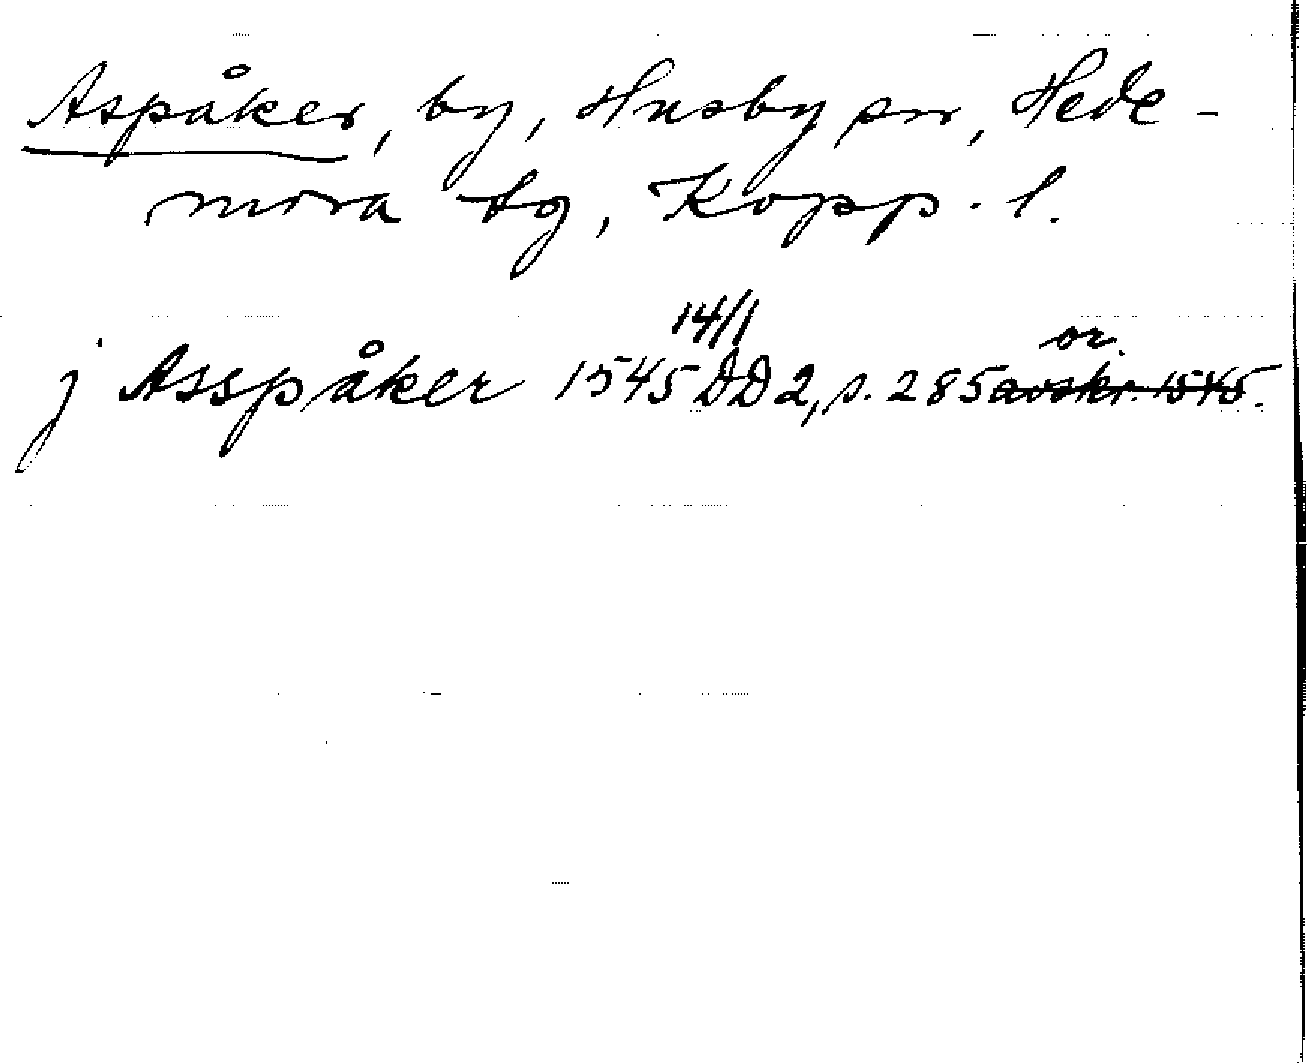 Aspåker, by, Husby sn, Hede-
mora tg, Kopp. l.
14/1 or.
j Asspåker 1545 DD2, s. 285 avskr. 1545.